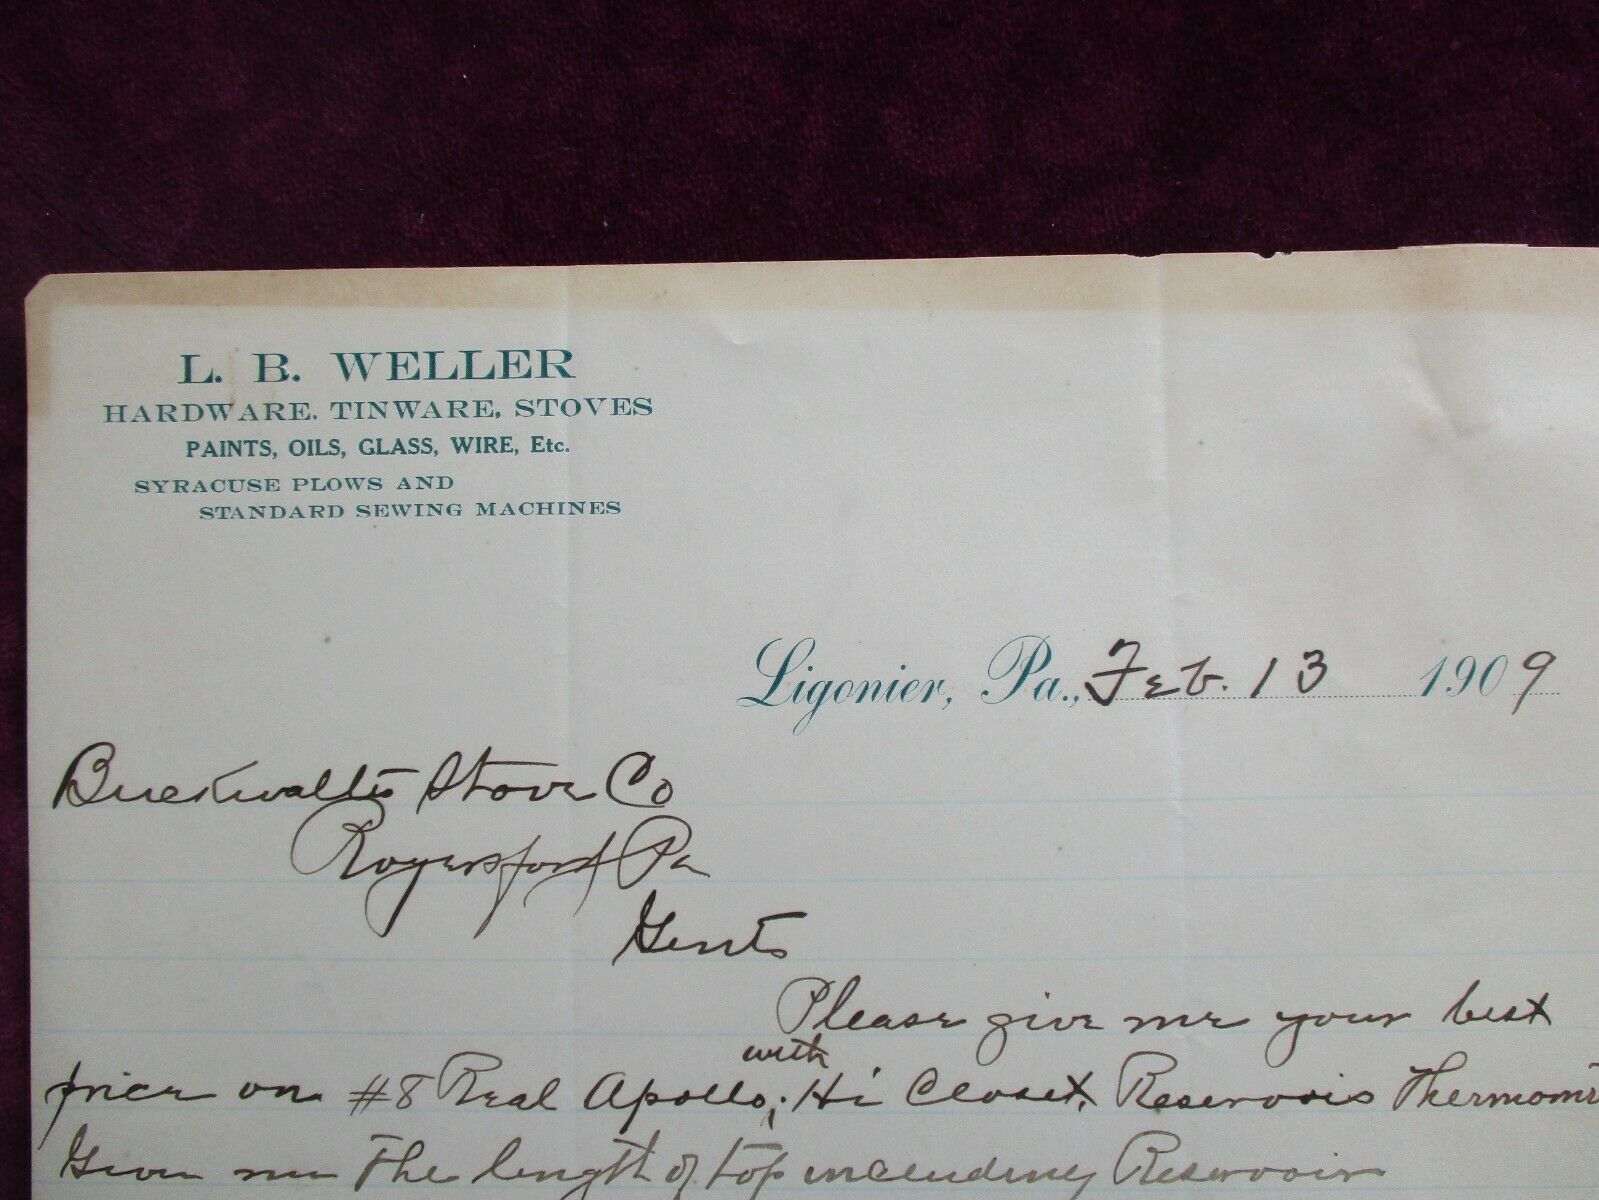 L. B. WELLER
HARDWARE. TINWARE, STOVES
PAINTS, OILS, GLASS, WIRE, Etc.
SYRACUSE PLOWS AND
STANDARD SEWING MACHINES
Ligonier, Pa., Feb. 13 1909
Buckwalter Stove Co
Royersford Pa
Gents
Please give me your best
with
price on #8 Real Apollo; Hi Closet, Reservoir Thermomtr
Given me The length of top including Reservoir